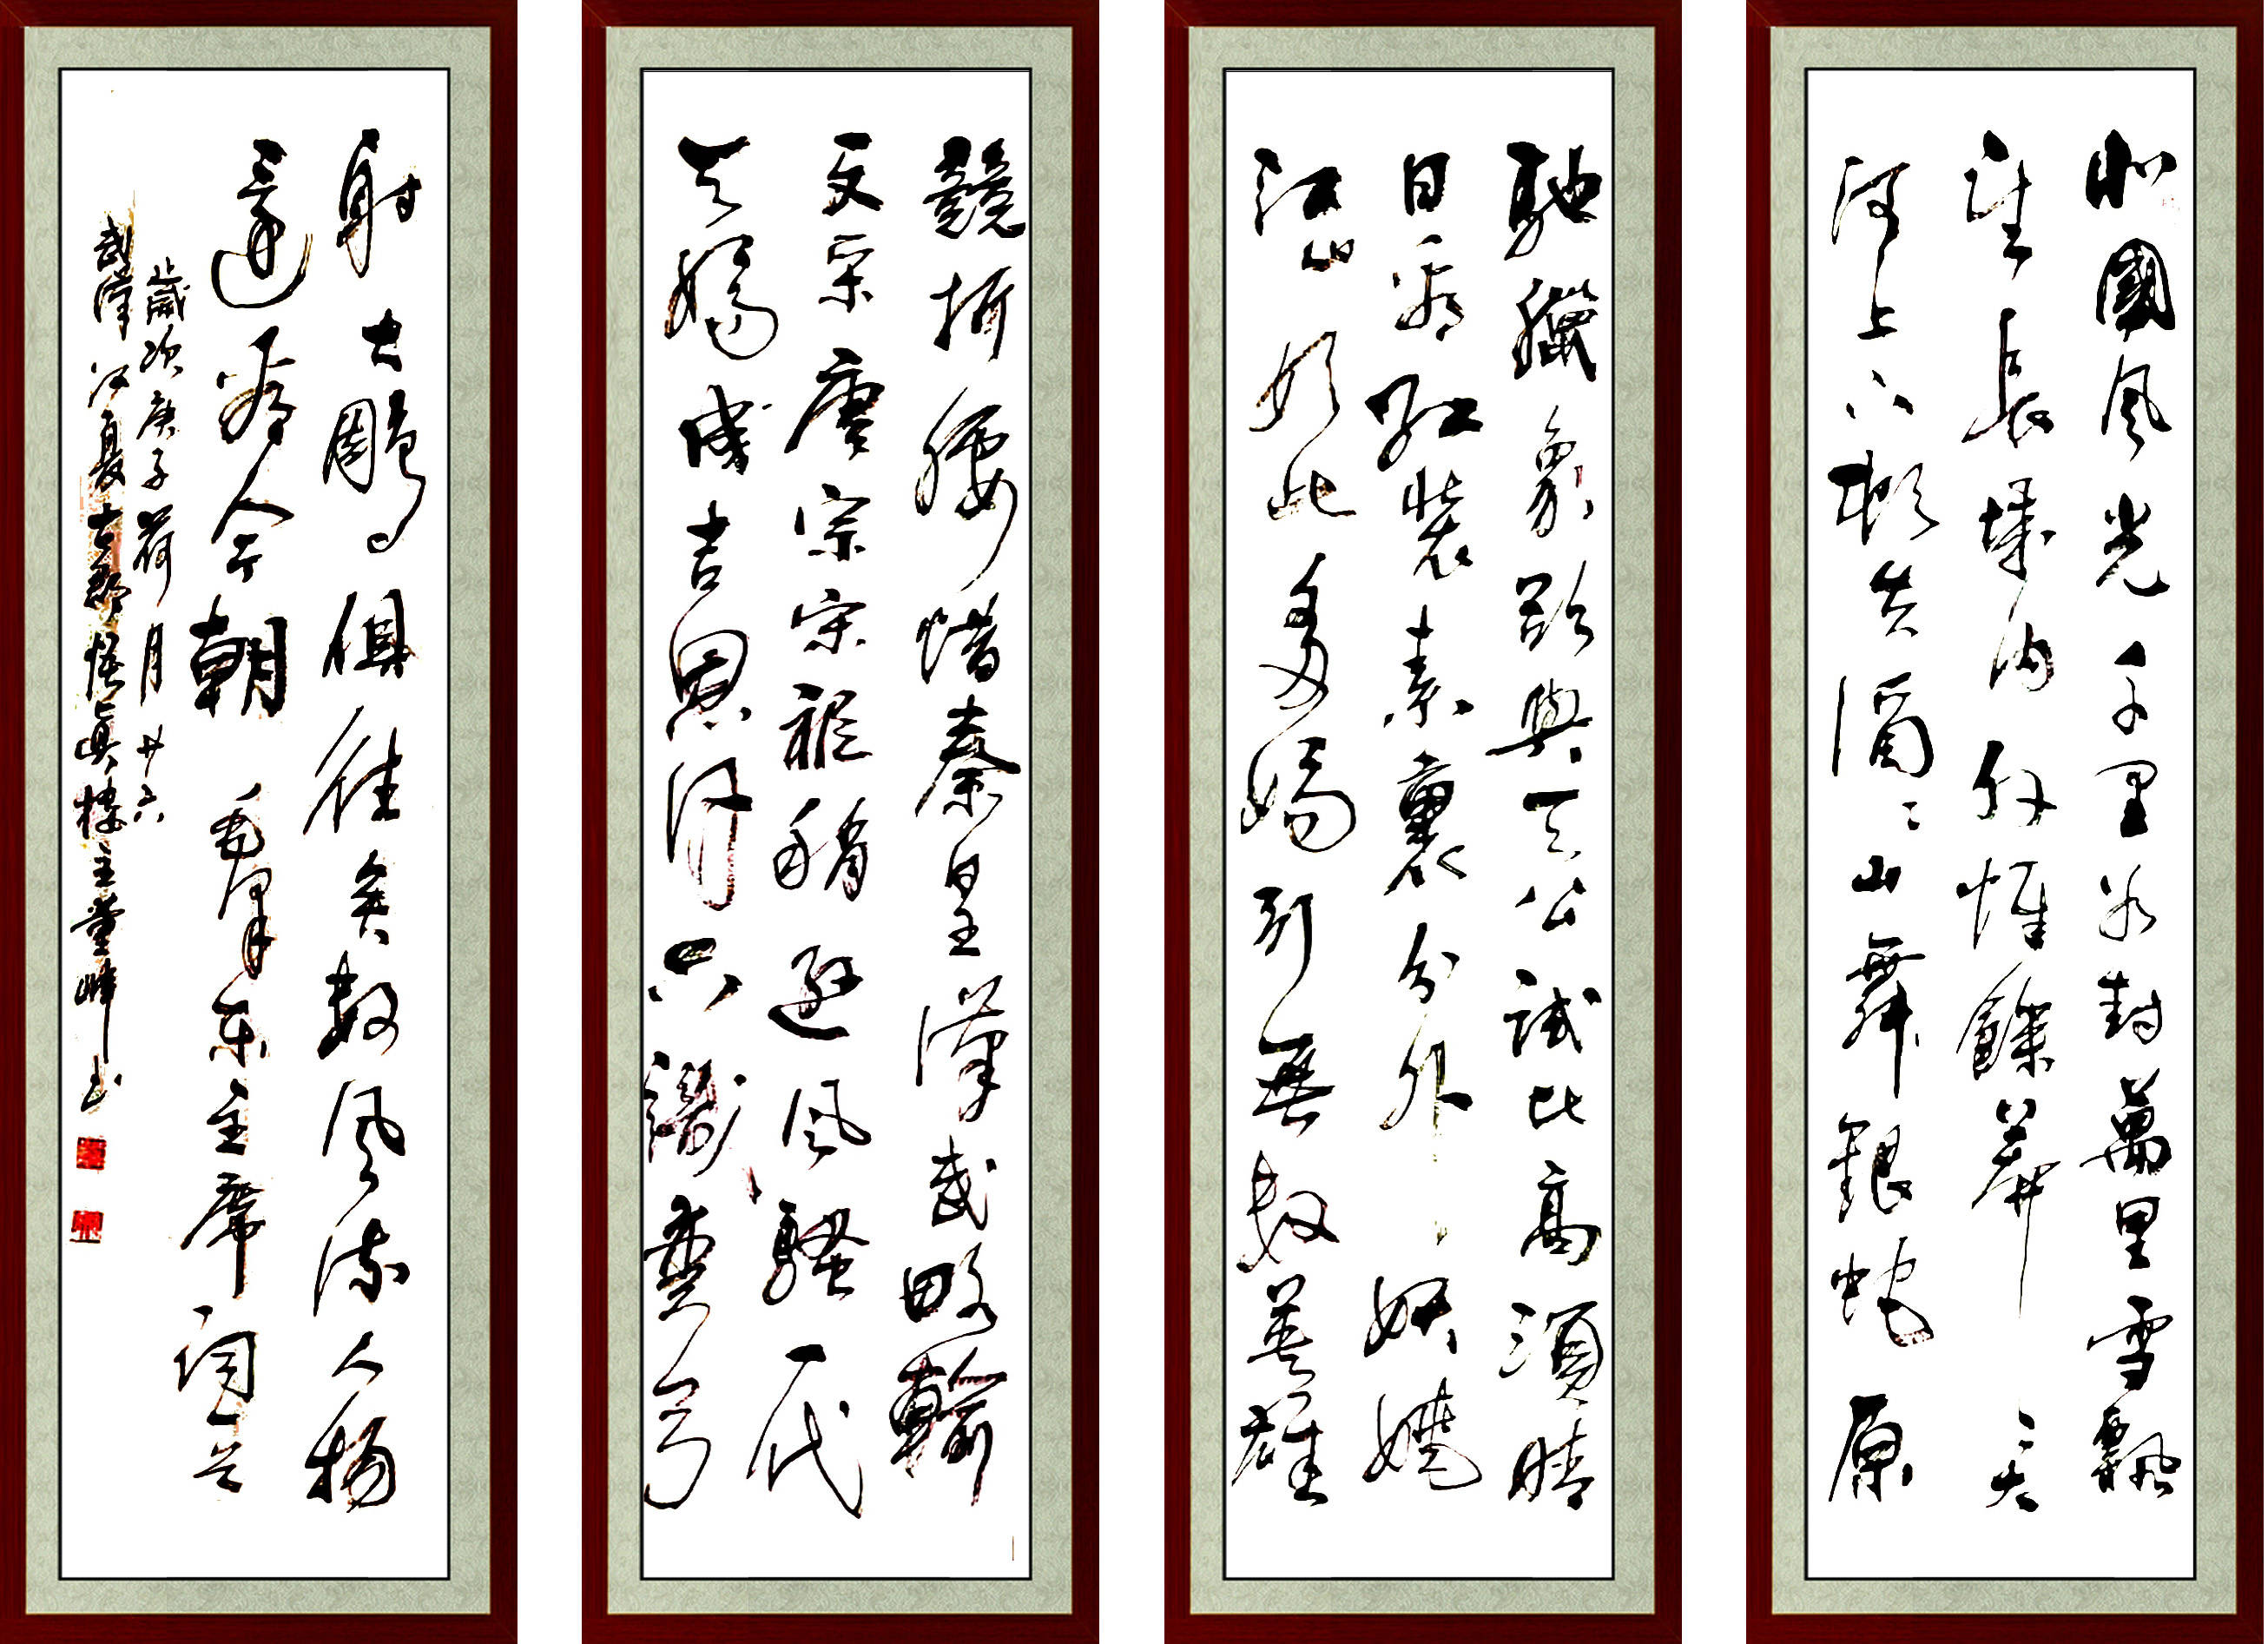 北國風光千里冰封萬里雪飄
望長城內外惟餘莽莽大
河上下頓失滔滔山舞銀蛇原
馳臘象欲與天公試比高須晴
日看紅裝素裹分外妖嬈
江山如此多嬌引無數英雄
競折腰惜秦皇漢武略輸
文采唐宗宋祖稍遜風騷一代
天嬌成吉思汗只識彎弓
射大雕俱往矣數風流人物
還看今朝 毛澤東主席詞一首
歲次庚子荷月廿六
武漢江夏古郡悟真樓主董峰書